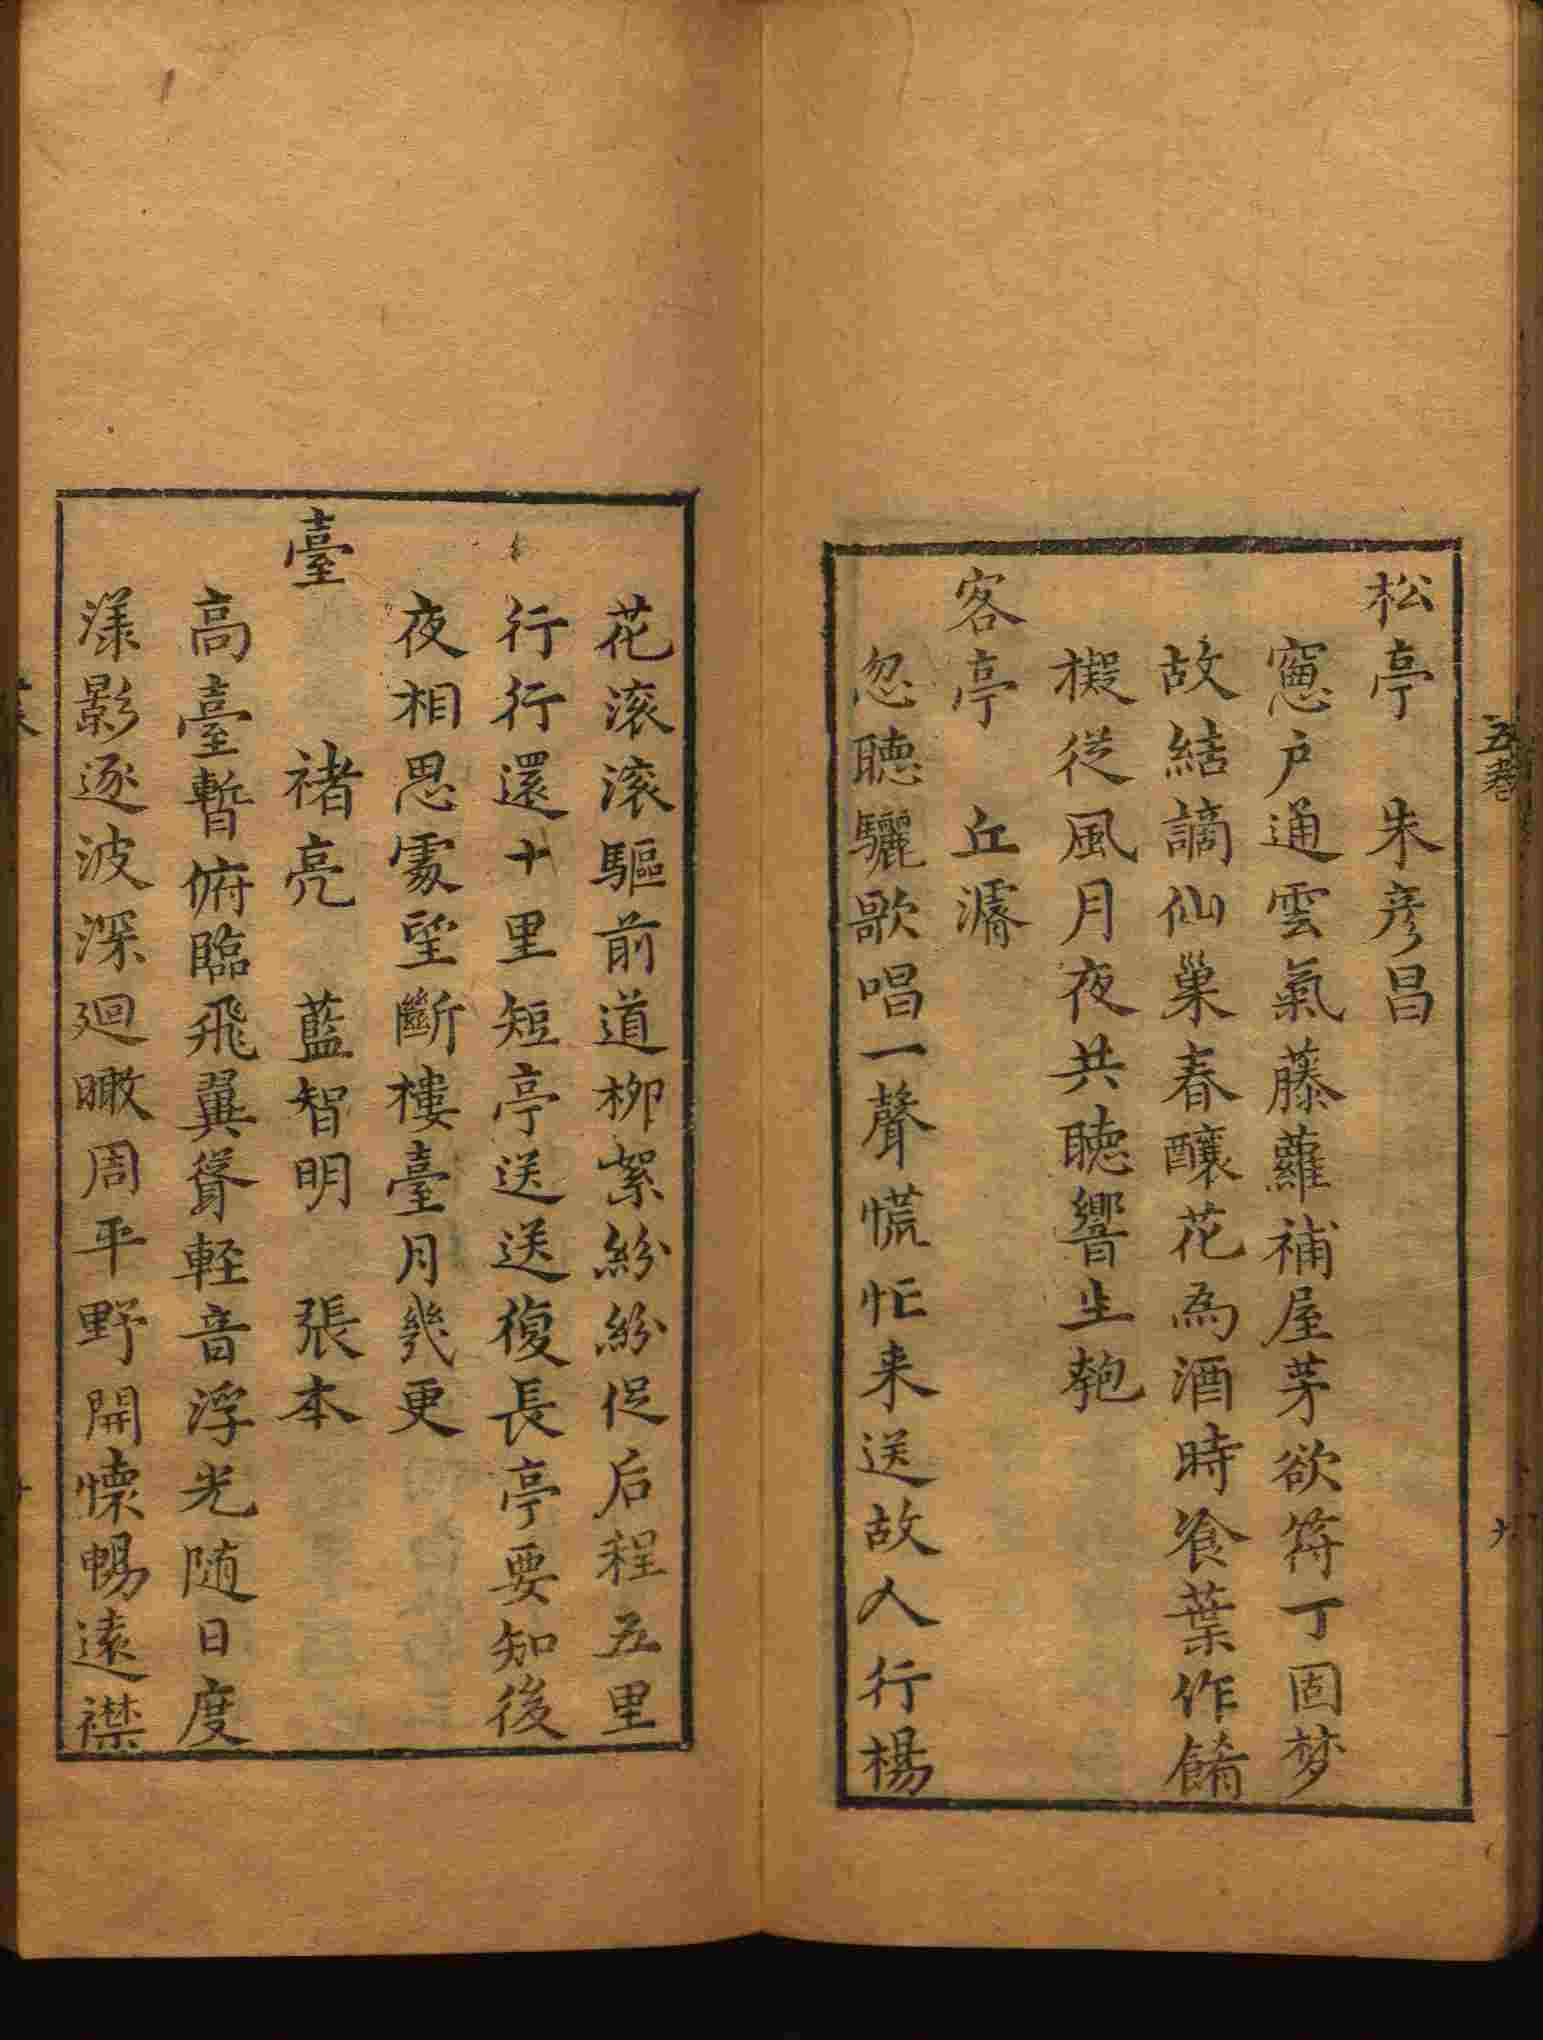 松亭　朱彥昌
窻戶通雲氣藤蘿補屋茅欲符丁固梦
故結謫仙巢春釀花為酒時飡葉作餚
擬從風月夜共聽響生匏
客亭　丘濬
忽聽驪歌唱一聲慌忙来送故人行楊
花滚滚驅前道柳絮紛紛促后程五里
行行還十里短亭送送復長亭要知後
夜相思處望斷樓臺月幾更
臺
褚亮　藍智明　張本
高臺暫俯臨飛翼聳輕音浮光随日度
漾影逐波深迴瞰周平野開懷暢遠襟
五卷
九